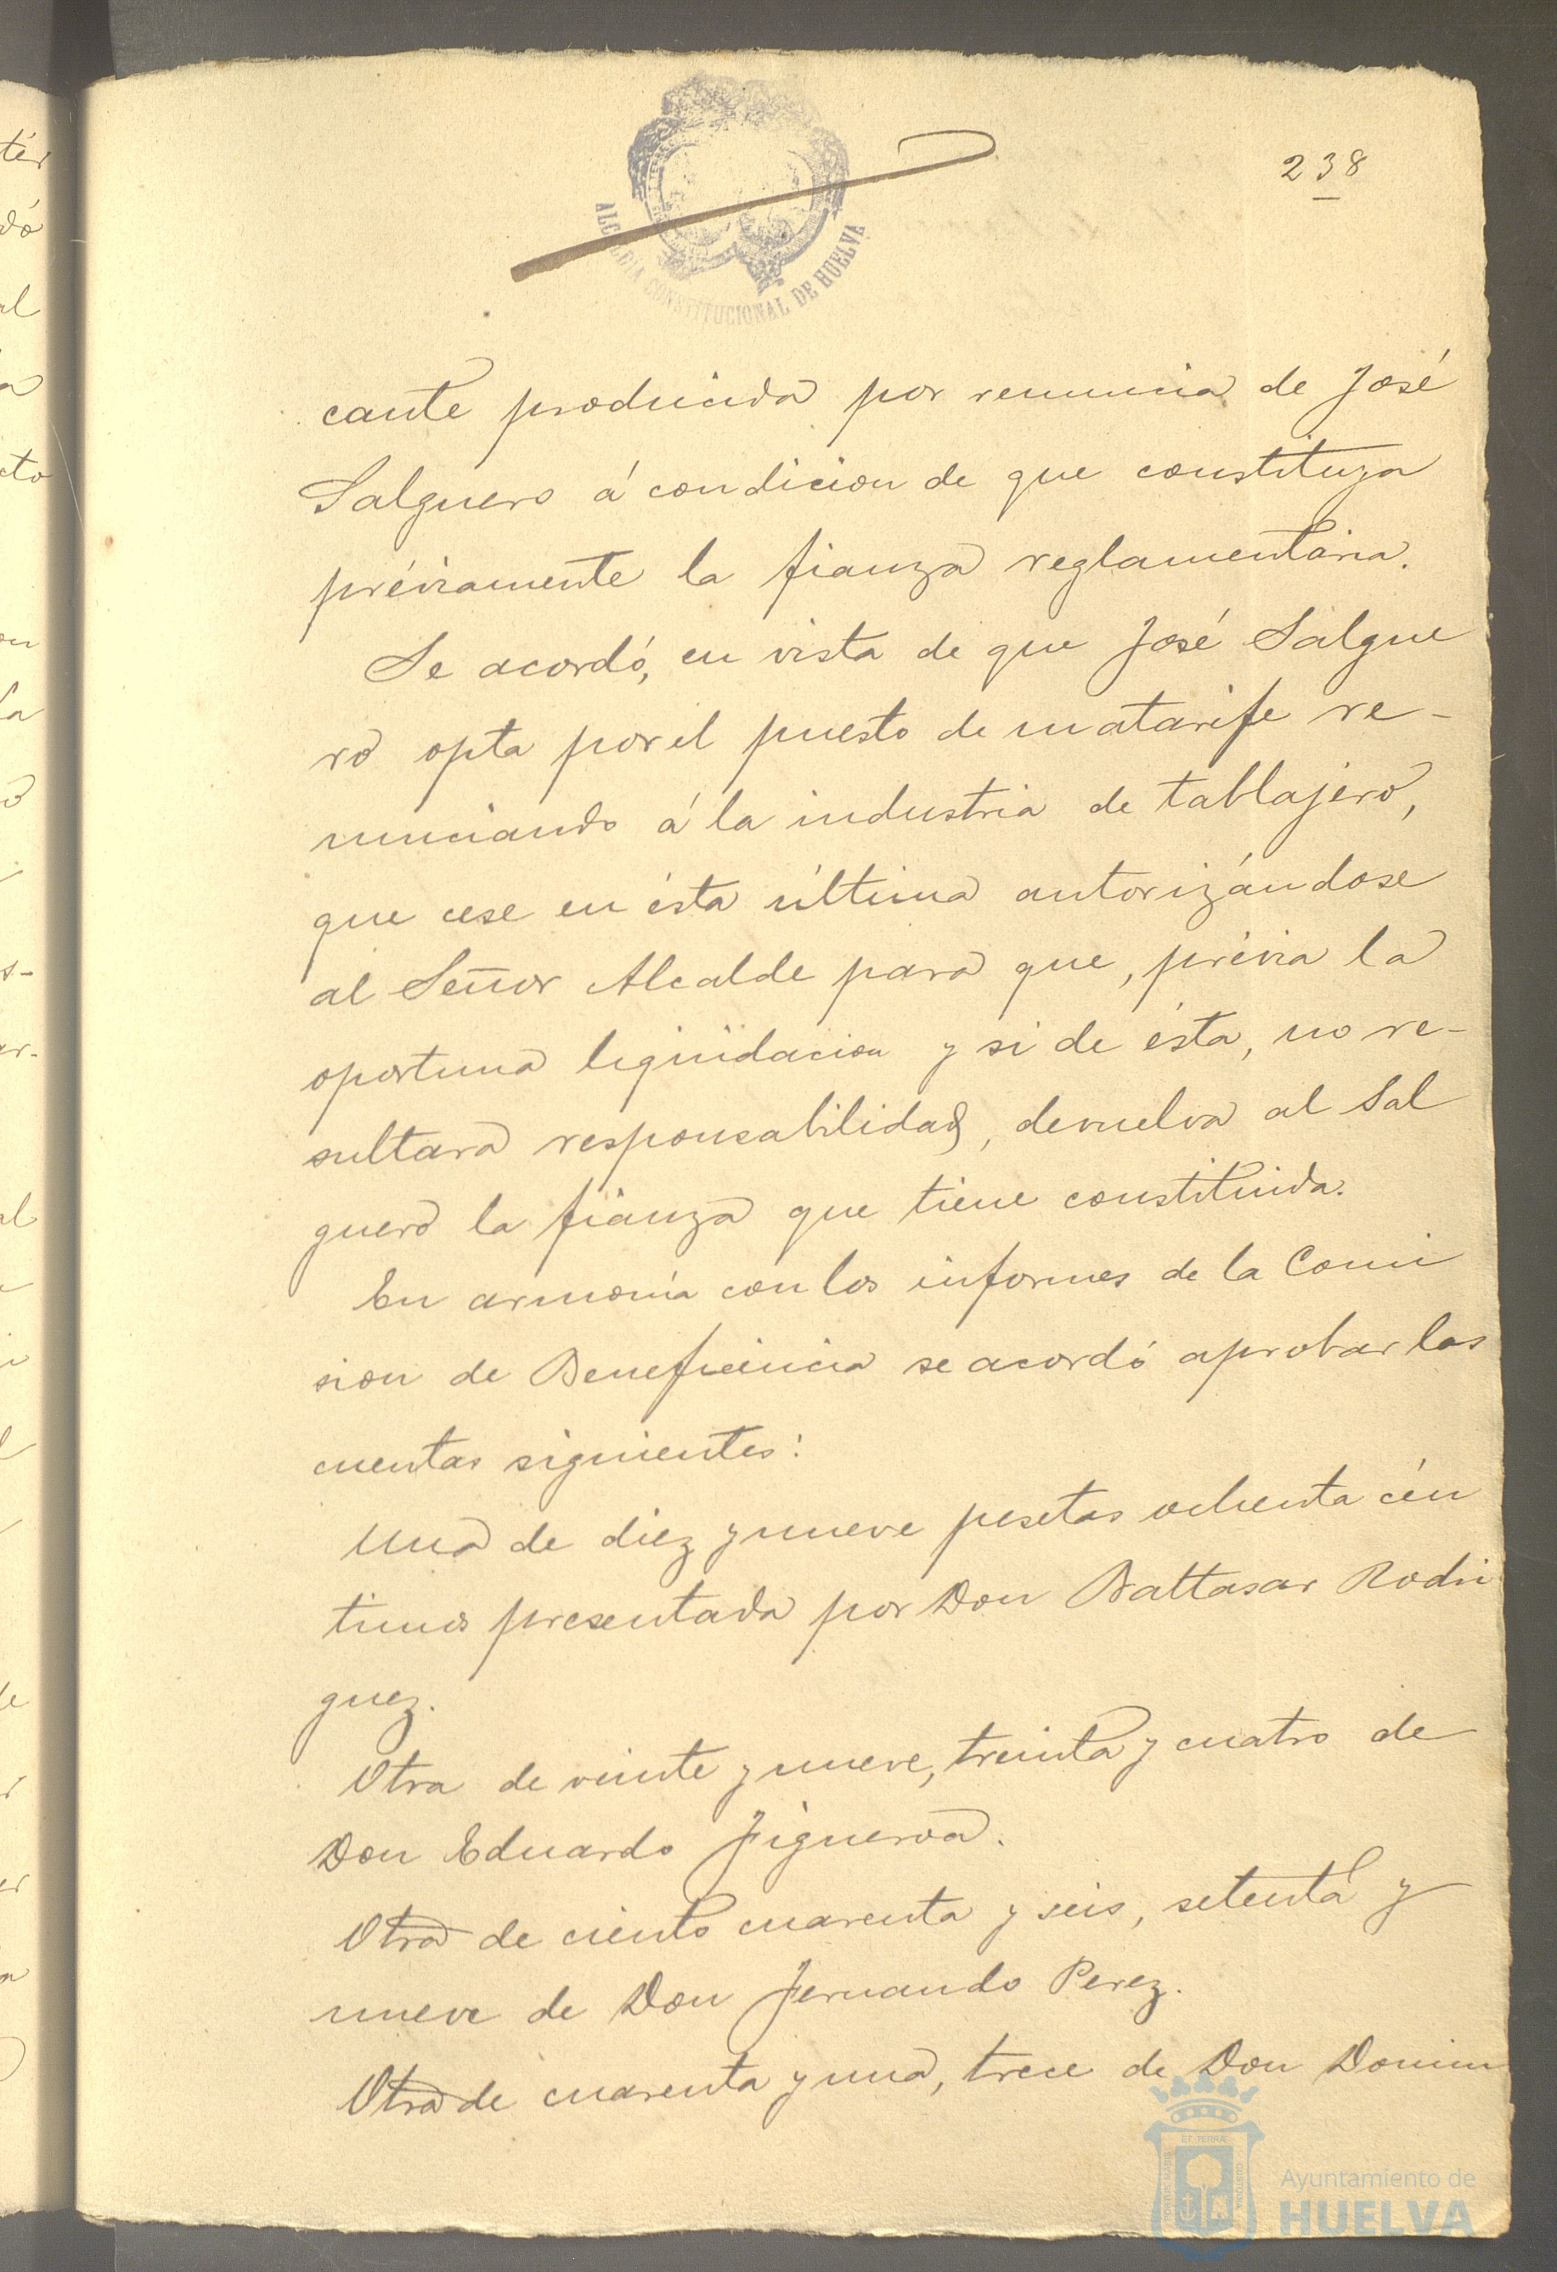 238
ALCALDIA CONSTITUCIONAL DE HUELVA
cante producida por renuncia de José
Salguero á condicion de que constituya
préviamente la fianza reglamentaria.
Se acordó, en vista de que José Salgue
ro opta por el puesto de matarife re-
nunciando á la industria de tablajero,
que cese en ésta última autorizándose
al Señor Alcalde para que, prévia la
oportuna liqüidacion y si de ésta, no re-
sultara responsabilidad, devuelva al Sal
guero la fianza que tiene constituida.
En armonía con los informes de la Comi
sion de Beneficencia se acordó aprobar las
cuentas siguientes:
Una de diez y nueve pesetas ochenta cén
timos presentada por Don Baltasar Rodri
guez.
Otra de veinte y nueve, treinta y cuatro de
Don Eduardo Figueroa.
Otra de ciento cuarenta y seis, setenta y
nueve de Don Fernando Perez.
Otra de cuarenta y una, trece de Don Domin
Ayuntamiento de
HUELVA